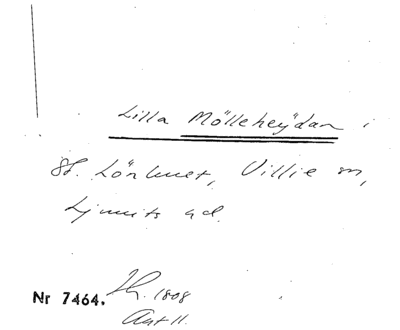 Lilla Mölleheÿdan i
St. Lönhuet, Villie sn,
Ljunits hd.
Nr 7464. Th. 1808
Akt 11.